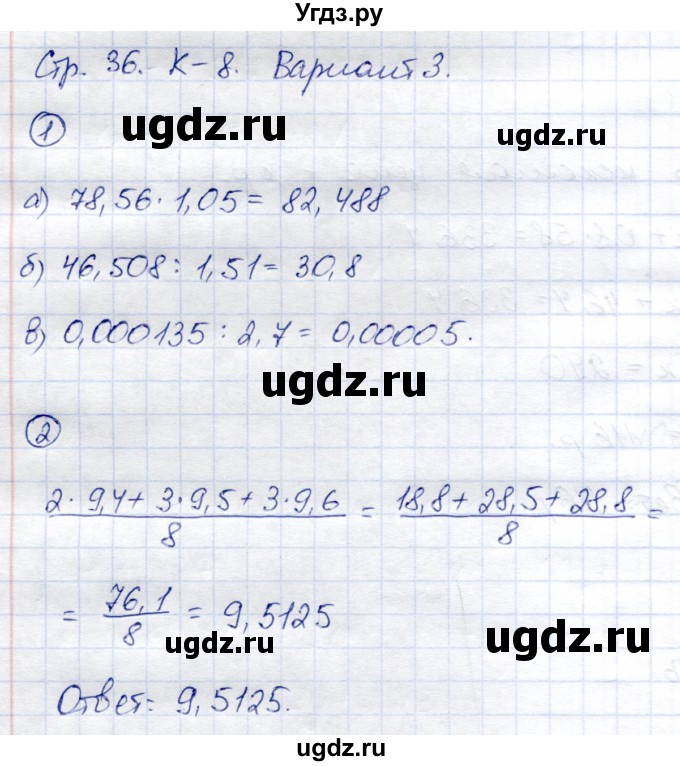 Угдз.ру
Стр. 36. К-8. Вариант 3.
1 ugdz.ru ugdz.ru
а) 78,56 · 1,05 = 82,488
б) 46,508 : 1,51 = 30,8
в) 0,000135 : 2,7 = 0,00005.
ugdz.ru
2
2 · 9,4 + 3 · 9,5 + 3 · 9,6 / 8 = 18,8 + 28,5 + 28,8 / 8 =
= 76,1 / 8 = 9,5125
ugdz.ru ugdz.ru
Ответ: 9,5125.
ugdz.ru